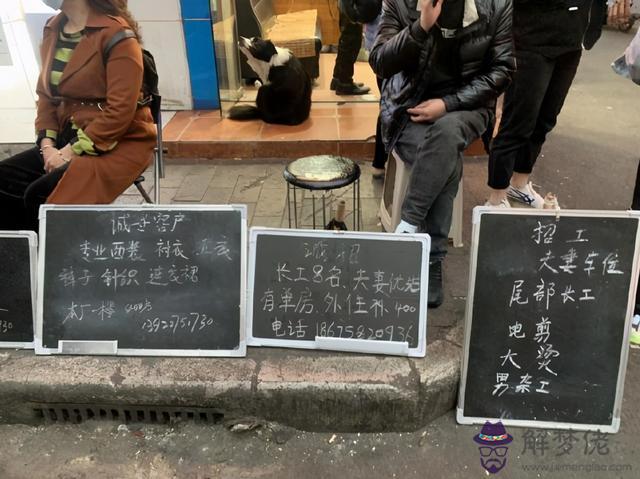 诚寻客户
专业西装 衬衣
裤子 针织 连衣裙
本厂一楼
长工8名、夫妻优先
有单房、外住补400
电话
招工
夫妻车位
尾部长工
电剪
大烫
男杂工
解梦佬
www.jiemenglao.com